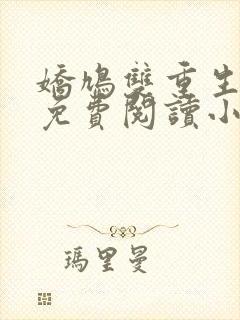 嬌鳩雙重生
免費閱讀小
瑪里曼